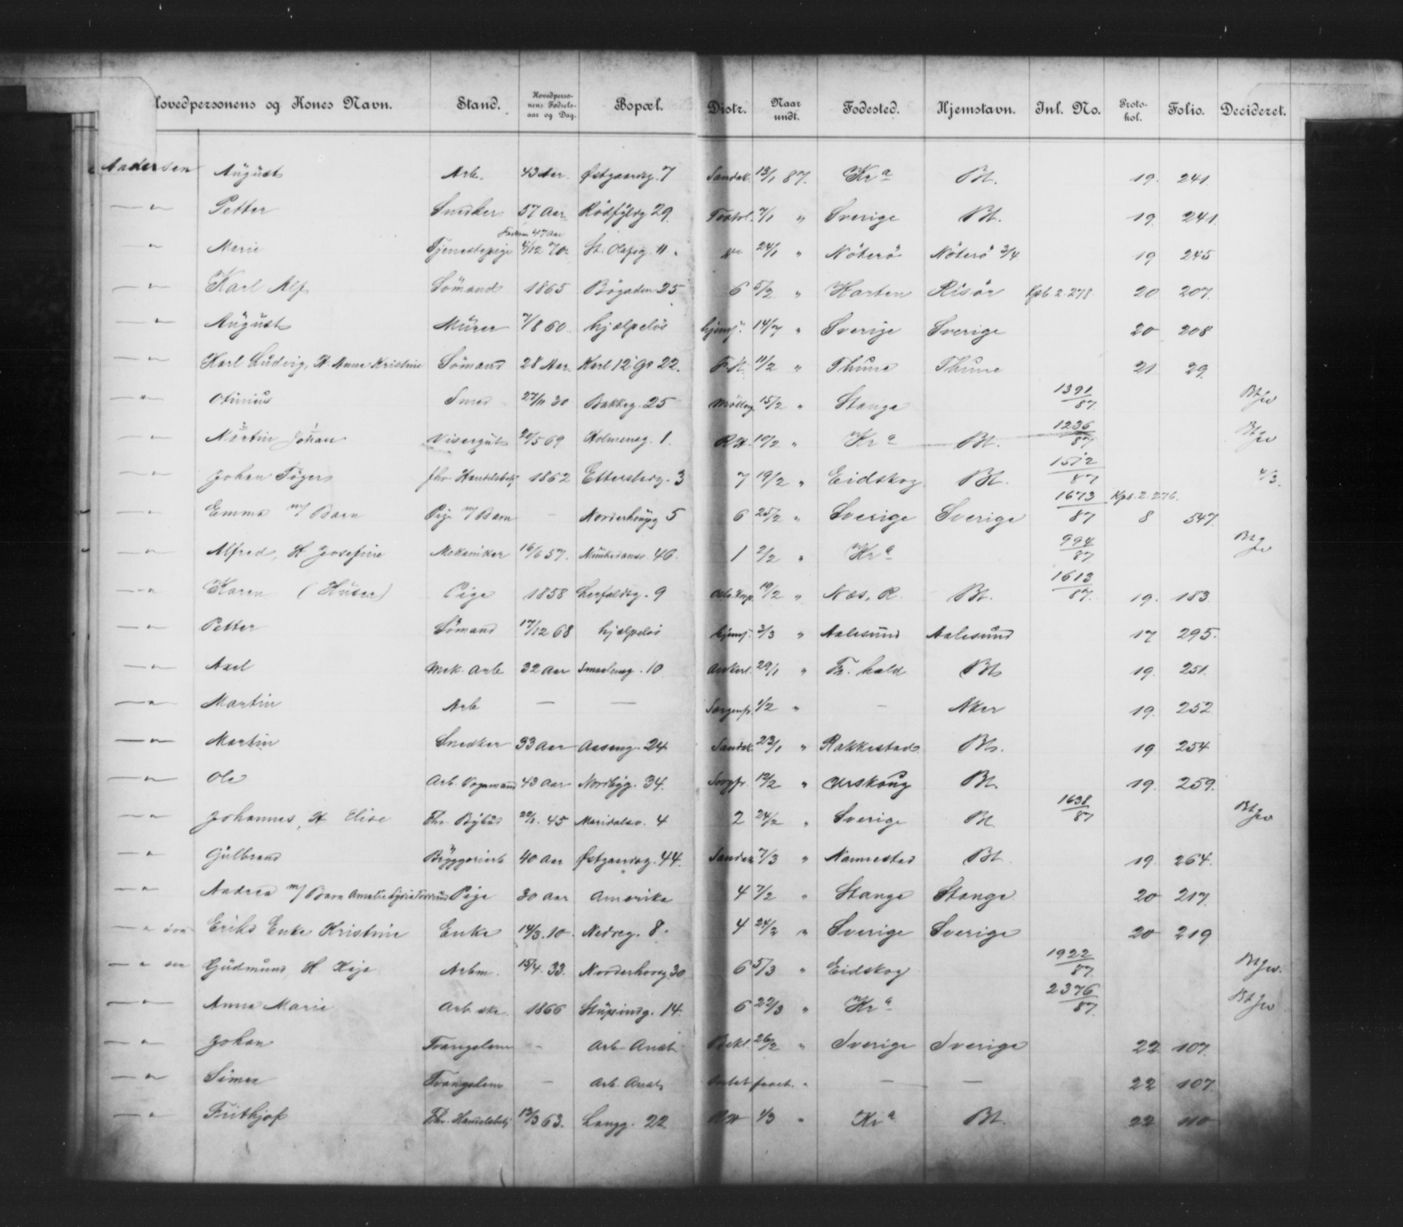 Hovedpersonens og Kones Navn. Stand. Hovedpersonens Fødselsaar og Dag. Bopæl. Distr. Naar undt. Fødested. Hjemstavn. Inl. No. Protokol. Folio. Decideret.
Andersen August Arb. 43 Aar. Østgaardsg. 7 Sandak. 13/1 87. Kra Bt. 19. 241
—"— Petter Snedker 57 Aar Rödfyldg 29. 7/1 " Sverige Bt. 19. 241.
—"— Marie Tjenestepige 4/12 70. St. Olafsg. 11. 24/1 " Nöterö Nöterö 3/4 19 245
—"— Karl Alf. Sömand 1865 Bögaden 25 6 5/2 " Risör 20 207.
—"— August Murer 7/8 60. hjælpelös hjemj. 14/7 " Sverige Sverige 20 208
—"— Karl Ludvig, H. Anne Kristine Sömand 28 Aar. Karl 12' Gd 22. 11/2 " Thune Thune 21 29.
—"— Otinius Smed 27/11 30 Bakkeg. 25 15/2 " Stange 1391/87. Bt
—"— Martin Johan Visergut 20/5 69 Holmensg. 1. 10/2 " Kra Bt. 1236/87
—"— Johan fhv. Handelsbetj 1862 Etterstadg. 3 7 19/2 " Eidskog Bt. 1512/87 4/3.
—"— Emma m/ Barn Pige m/ Barn — Norderhougg 5 6 25/2 " Sverige Sverige 1673/87 Kpb. 2. 276. 8 547.
—"— Alfred, H Josefine Mekaniker 16/6 57. Munkedamsv. 46. 1 2/2 " Kra 994/87 Bt
—"— Karen (Huser) Pige 1858 Herfoldsg. 9 10/2 " Næs, R. Bt. 1613/87. 19. 183.
—"— Petter Sömand 17/12 68 hjælpelös hjemj. 3/3 " Aalesund Aalesund 17 295.
—"— Axel Mek. Arb 32 Aar Smaleng. 10 29/1 " Fr. hald Bt. 19. 251.
—"— Martin Arb — — 1/2 " — Aker 19. 252
—"— Martin Snedker 33 Aar Aaseng. 24 Sandak 22/1 " Rakkestad Bt. 19 254
—"— Ole Arb. Vognmand 43 Aar Nordbyg. 34. 12/2 " Urskoug Bt. 19. 259.
—"— Johannes, H Elise Fhv. Bybud 22/1. 45 Maridalsv. 4 2 24/2 " Sverige Bt 1638/87 Bt
—"— Gulbrand Bryggeriarb 40 Aar Østgaardsg. 44. Sandak 7/3 " Nannestad Bt. 19. 264.
—"— Andrea m/ Barn Pige 30 Aar Amerika 4 7/2 " Stange Stange 20 217.
—"— Eriks Enke Kristine Enke 14/3. 10. Nedreg. 8. 4 24/2 " Sverige Sverige 20 219
—"— Gudmund, H Arbm. 15/4. 33. Norderhovsg 30 6 5/3 " Eidskog 1922/87. Bt
—"— Anna Marie Arb. ske 1866 Stupindg. 14 6 22/3 " Kra 2376/87. Bt
—"— Johan Tvangslem — Arb. Anst. 26/2 " Sverige Sverige 22 107.
—"— Simen Tvangslem — Arb. Anst. " — — 22 107.
—"— Frithjof Fhv. Handelsbetj 12/3 63. Langg. 22 1/3 " Kra Bt. 22 110